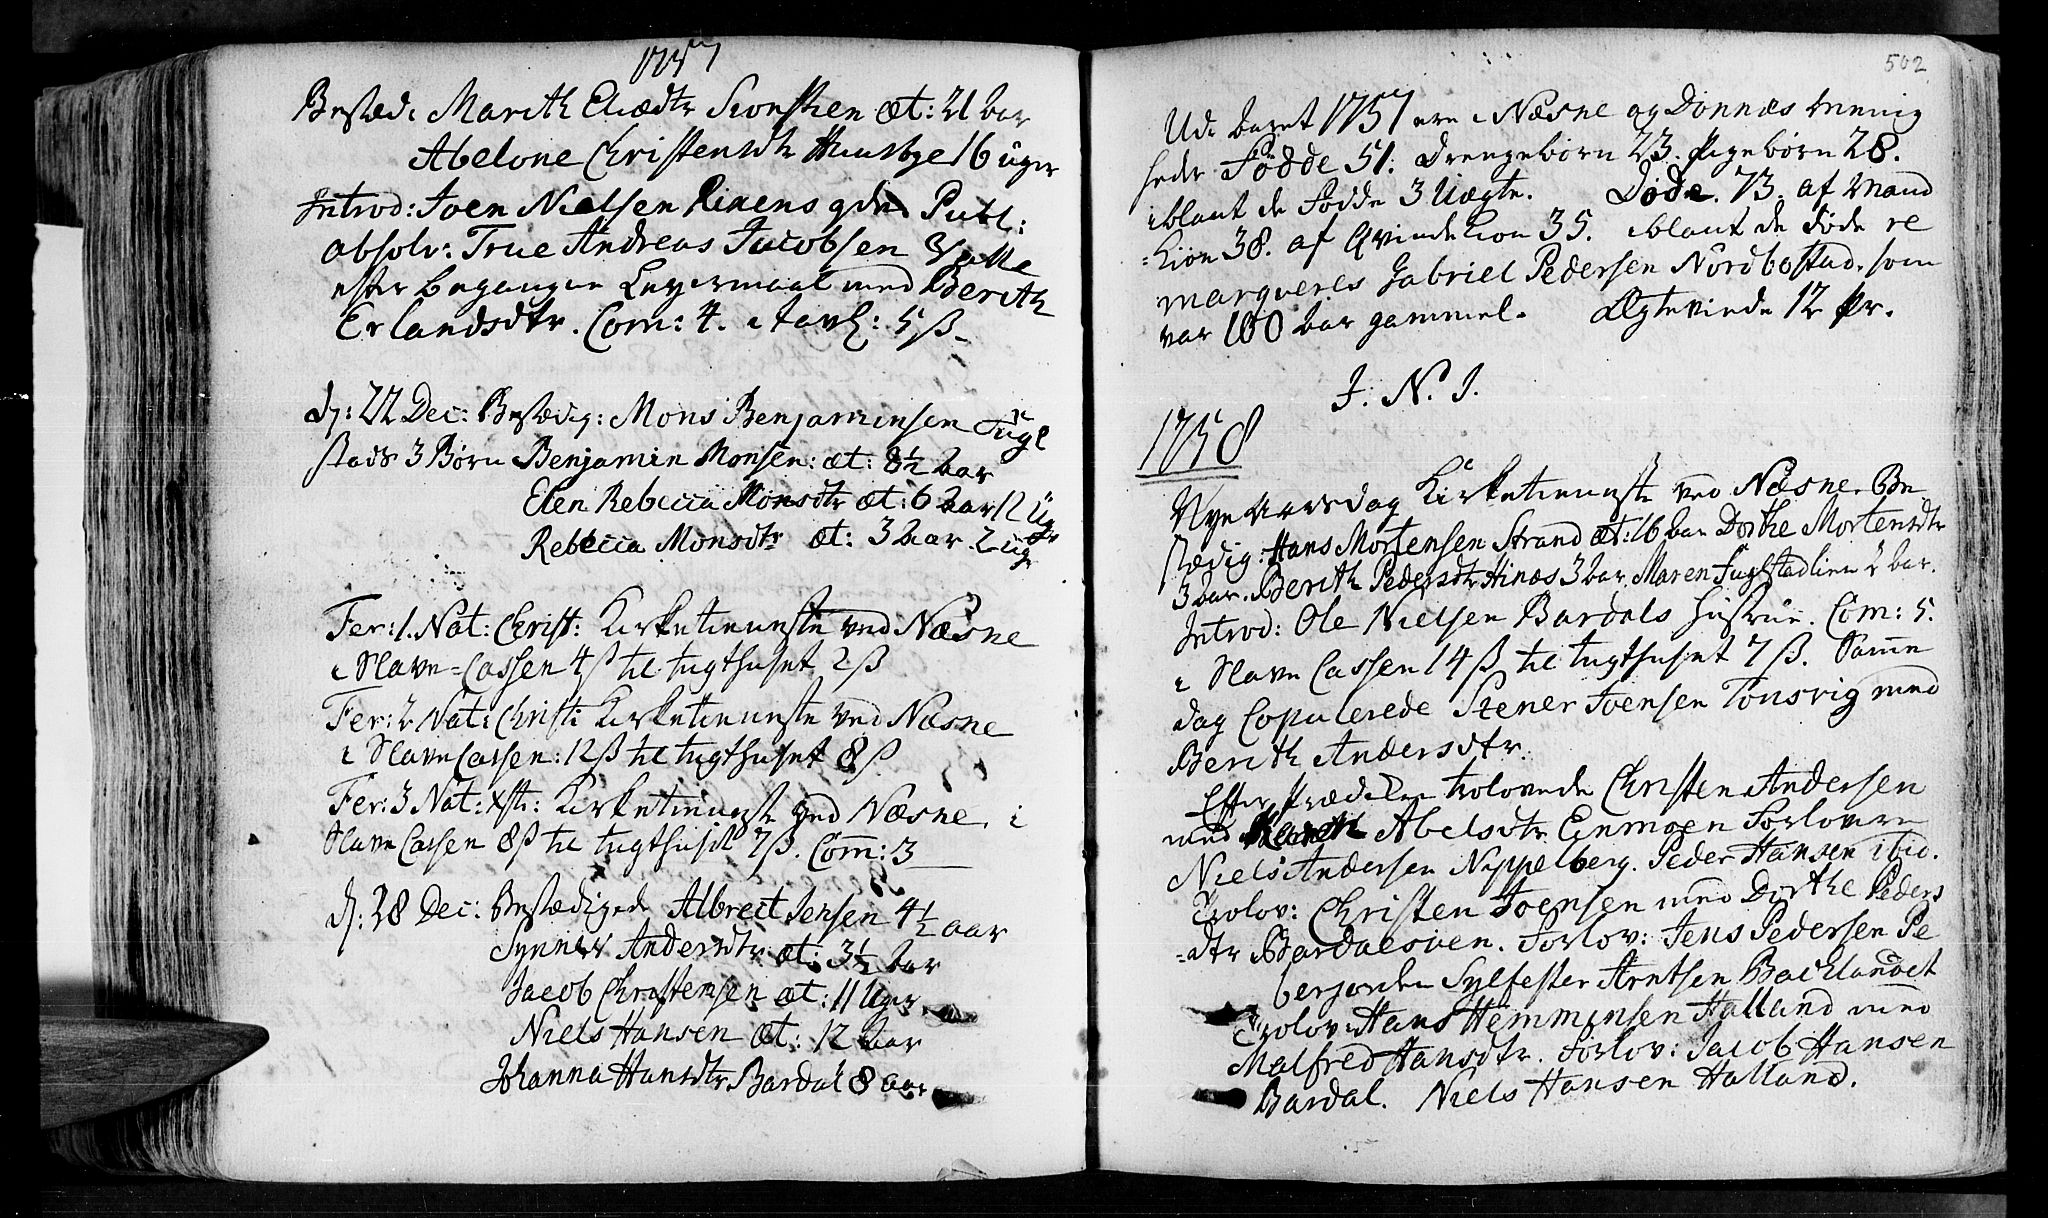 1757
Bested: Marith Eliædtr Sionshen æt: 21 aar
Abelone Christensdtr Huusbye 16 uger
Introd: Joen Nielsen Rinens qde Publ:
absolv: True Andreas Jacobsen
efter begangen Leyermaal med Berith
Erlandsdtr. Com: 4. i tavl: 5 ß
d: 22 Dec: Bestædig: Mons Benjaminsen Fugl
stads 3 Børn Benjamin Monsen: æt: 8½ aar
Elen Rebecca Monsdtr æt: 6 aar 12 Ug
Rebecca Monsdtr æt: 3 aar. 2 ug
Fer: 1. Nat: Christ: Kirketienneste ved Næsne
i Slave=Cassen 4 ß til tugthuset 2 ß
Fer: 2 Nat: Christi Kirketienneste ved Næsne
i Slave Cassen: 12 ß til tugthuset 8 ß
Fer: 3 Nat: Xsti: Kirketienneste ved Næsne. i
Slave Cassen 8 ß til tugthuset 7 ß. Com: 3
d: 28 Dec: Bestædigede Albrect Jensen 4½ aar
Synnev Andersdtr æt: 3½ aar
Jacob Christensen æt: 11 Uger
Niels Hansen æt: 12 aar
Johanna Hansdtr Bardal 8 aar
502
Udi aaret 1757 ere i Næsne og Dønnæs menig
heder Fødde 51: Drengebørn 23. Pigebørn 28.
iblant de Fødde 3 Uægte. Døde. 73. af Mand
=kiøn 38. af Qvindekiøn 35. iblant de døde re
marqveres Gabriel Pedersen Nordbostad, som
var 100 aar gammel. Ægteviede 12 Pr.
J. N. J.
1758
Nye aarsdag Kirketienneste ved Næsne. Be
stædig: Hans Mortensen Strand æt: 16 aar Dorthe Mortensdtr
3 aar. Berith Pedersdtr Hinæs 3 aar. Maren Fuglstadlien 2 aar.
Introd: Ole Nielsen Bardals Hustrue. Com: 5.
i Slave Cassen 14 ß til tugthuset 7 ß. Samme
dag Copulerede Stener Joensen Tonsvig med
Berith Andersdtr.
Efter Prædiken trolovede Christen Andersen
med Abelsdtr Enmoen Forlovere
Niels Andersen Nippelberg. Peder Hansen ibid.
Trolov: Christen Joensen med Dorthe Peders
=dtr Bardalsøen. Forlov: Jens Pedersen Pe
Sylfester Arntsen Backlandet
Trolov: Hans Hemminsen Halland med
Malfred Hansdtr. Forlov: Jacob Hansen
Bardal. Niels Hansen Halland.